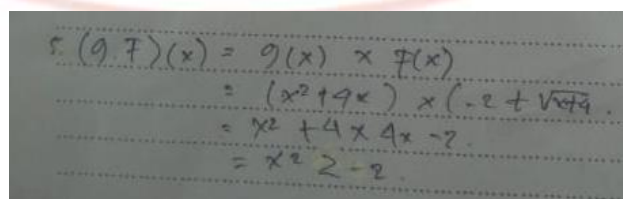 5. (g.f)(x) = g(x) × f(x)
= (x²+4x) × (-2 + √x+4.
= x² + 4x 4x -2.
= x² 2 - 2.